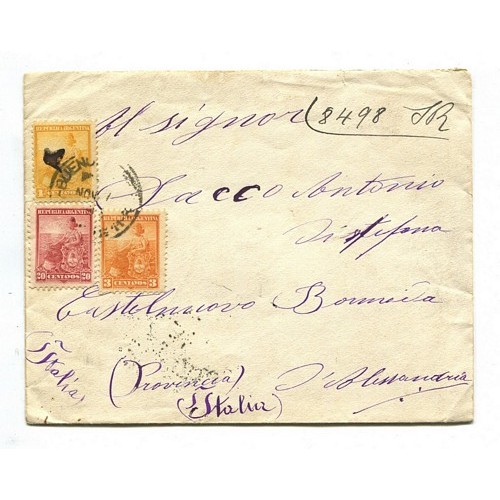 Al signor 8498 SR
REPUBLICA ARGENTINA
BUEN
NOV
Sacco Antonio
REPUBLICA ARGENTINA
20 CENTAVOS 20
REPUBLICA ARGENTINA
3 CENTAVOS 3
di Stefano
Castelnuovo Bormida
Italia
(Provincia) d'Alessandria
(Italia)